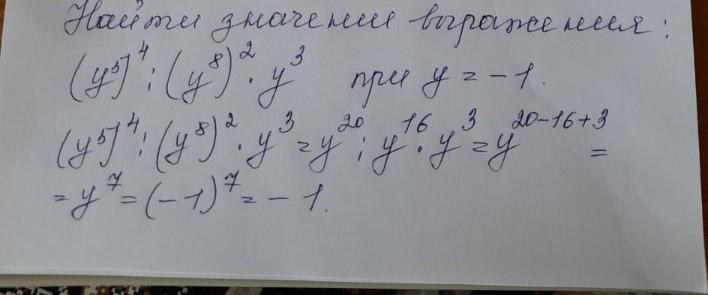 Найти значении выражения:
(y⁵)⁴ : (y⁸)² · y³ при y = -1.
(y⁵)⁴ : (y⁸)² · y³ = y²⁰ : y¹⁶ · y³ = y²⁰⁻¹⁶⁺³ =
= y⁷ = (-1)⁷ = -1.